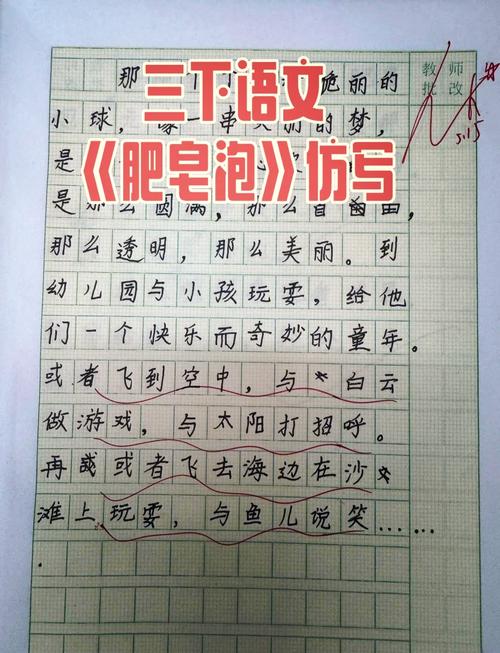 三下语文
《肥皂泡》仿写
教师
批改
5.15
那一个丽的
小球，一串丽的梦，
是
是那么圆满，那么自由，
那么透明，那么美丽。到
幼儿园与小孩玩耍，给他
们一个快乐而奇妙的童年。
或者飞到空中，与白云
做游戏，与太阳打招呼。
再或者飞去海边在沙
滩上玩耍，与鱼儿说笑……